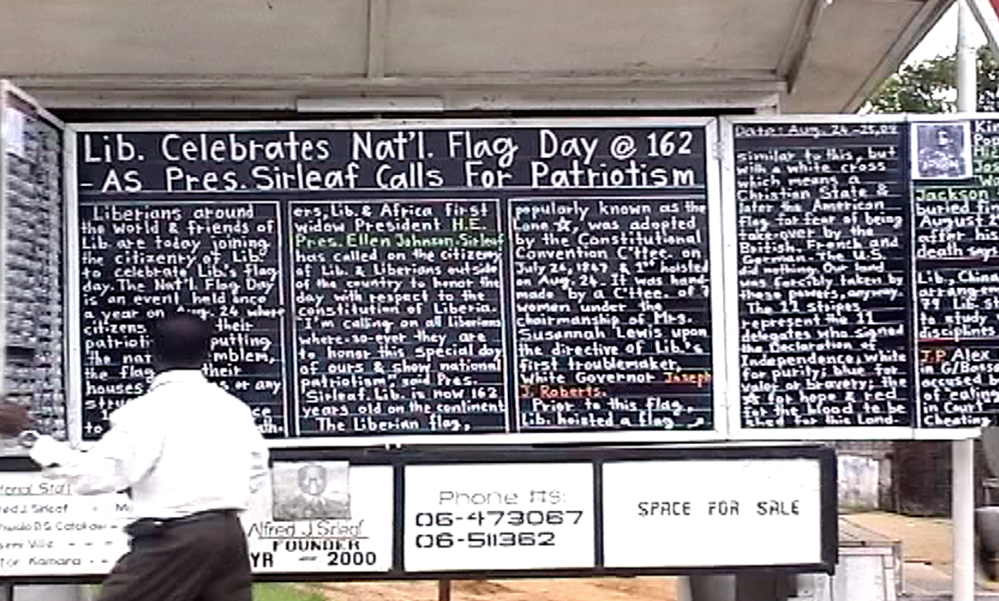 Lib. Celebrates Nat'l. Flag Day @ 162
- As Pres. Sirleaf Calls For Patriotism
Liberians around
the world & friends of
Lib. are today joining
the citizenry of Lib.
to celebrate Lib's flag
day. The Nat'l Flag Day
is an event held once
a year on Aug. 24 where
citizens their
patriot putting
the nat emblem,
the flag their
houses or any
ers, Lib. & Africa first
widow President H.E.
Pres. Ellen Johnson-Sirleaf
has called on the citizenry
of Lib. & Liberians outside
of the country to honor the
day with respect to the
constitution of Liberia.
"I'm calling on all liberians
where-so-ever they are
to honor this special day
of ours & show national
patriotism", said Pres.
Sirleaf. Lib. is now 162
years old on the continent
The Liberian flag,
popularly known as the
Lone ☆, was adopted
by the Constitutional
Convention C'ttee. on
July 26, 1847 & 1st hoisted
on Aug. 24. It was hand-
made by a C'ttee. of 7
women under the
chairmanship of Mrs.
Susannah Lewis upon
the directive of Lib.'s
first troublemaker,
White Governor Joseph
J. Roberts.
Prior to this flag,
Lib. hoisted a flag
Date: Aug. 24-25,09
similar to this, but
with a white cross
which meant
Christian State &
later the American
flag for fear of being
take-over by the
British, French and
German. The U.S.
did nothing. Our land
was forcibly taken by
these powers, anyway.
The 11 stripes
represent the 11
delegates who signed
the Declaration of
Independence; white
for purity; blue for
valor or bravery; the
☆ for hope & red
for the blood to be
shed for this Land.
Kin
Pop
Jackson
buried
August 2
after his
death says
Lib., China
arrangem
79 Lib. st
to study
disciplines
J.P. Alex
in G/Bassa
accused
of ealing
in Court
Cheating
torial Staff
red J. Sirleaf
tor Kamara
Alfred J. Sirleaf
FOUNDER
YR - 2000
Phone #s:
06-473067
06-511362
SPACE FOR SALE